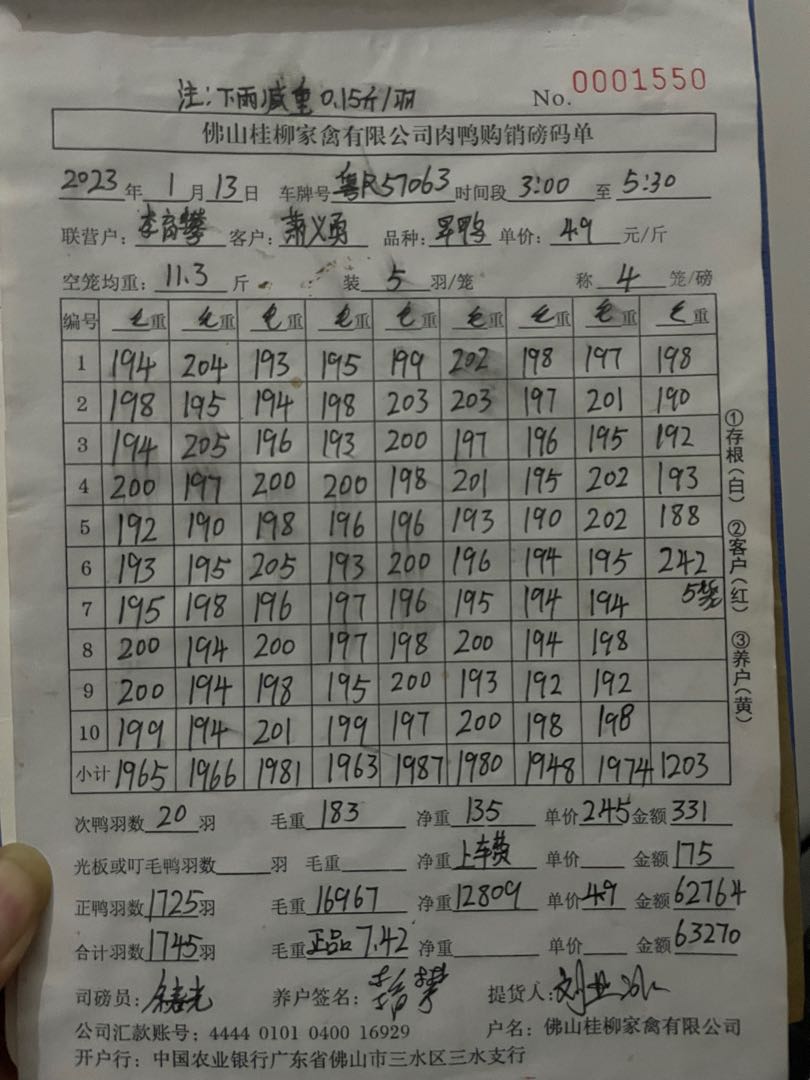 No. 0001550
注:下雨减重0.15斤/羽
佛山桂柳家禽有限公司肉鸭购销磅码单
2023年 1月 13日 车牌号 粤R57063 时间段 3:00 至 5:30
联营户: 李 攀 客户: 萧义勇 品种: 旱鸭 单价: 4.9 元/斤
空笼均重: 11.3 斤 装 5 羽/笼 称 4 笼/磅
编号 毛重 毛重 毛重 毛重 毛重 毛重 毛重 毛重 毛重
1 194 204 193 195 199 202 198 197 198
2 198 195 194 198 203 203 197 201 190
3 194 205 196 193 200 197 196 195 192
4 200 197 200 200 198 201 195 202 193
5 192 190 198 196 196 193 190 202 188
6 193 195 205 193 200 196 194 195 242
7 195 198 196 197 196 195 194 194 5笼
8 200 194 200 197 198 200 194 198
9 200 194 198 195 200 193 192 192
10 199 194 201 199 197 200 198 198
小计 1965 1966 1981 1963 1987 1980 1948 1974 1203
次鸭羽数 20 羽 毛重 183 净重 135 单价 2.45 金额 331
光板或叮毛鸭羽数 羽 毛重 净重 上车费 单价 金额 175
正鸭羽数 1725 羽 毛重 16967 净重 12809 单价 4.9 金额 62764
合计羽数 1745 羽 毛重 正品 7.42 净重 单价 金额 63270
司磅员: 养户签名: 提货人:
公司汇款账号: 4444 0101 0400 16929 户名: 佛山桂柳家禽有限公司
开户行: 中国农业银行广东省佛山市三水区三水支行
①存根(白) ②客户(红) ③养户(黄)